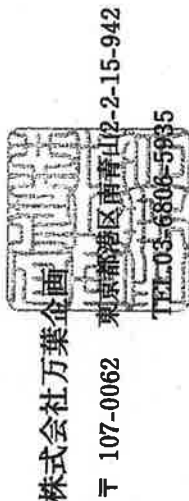 株式会社万葉企画
〒 107-0062 東京都港区南青山2-2-15-942
TEL03-6808-5935